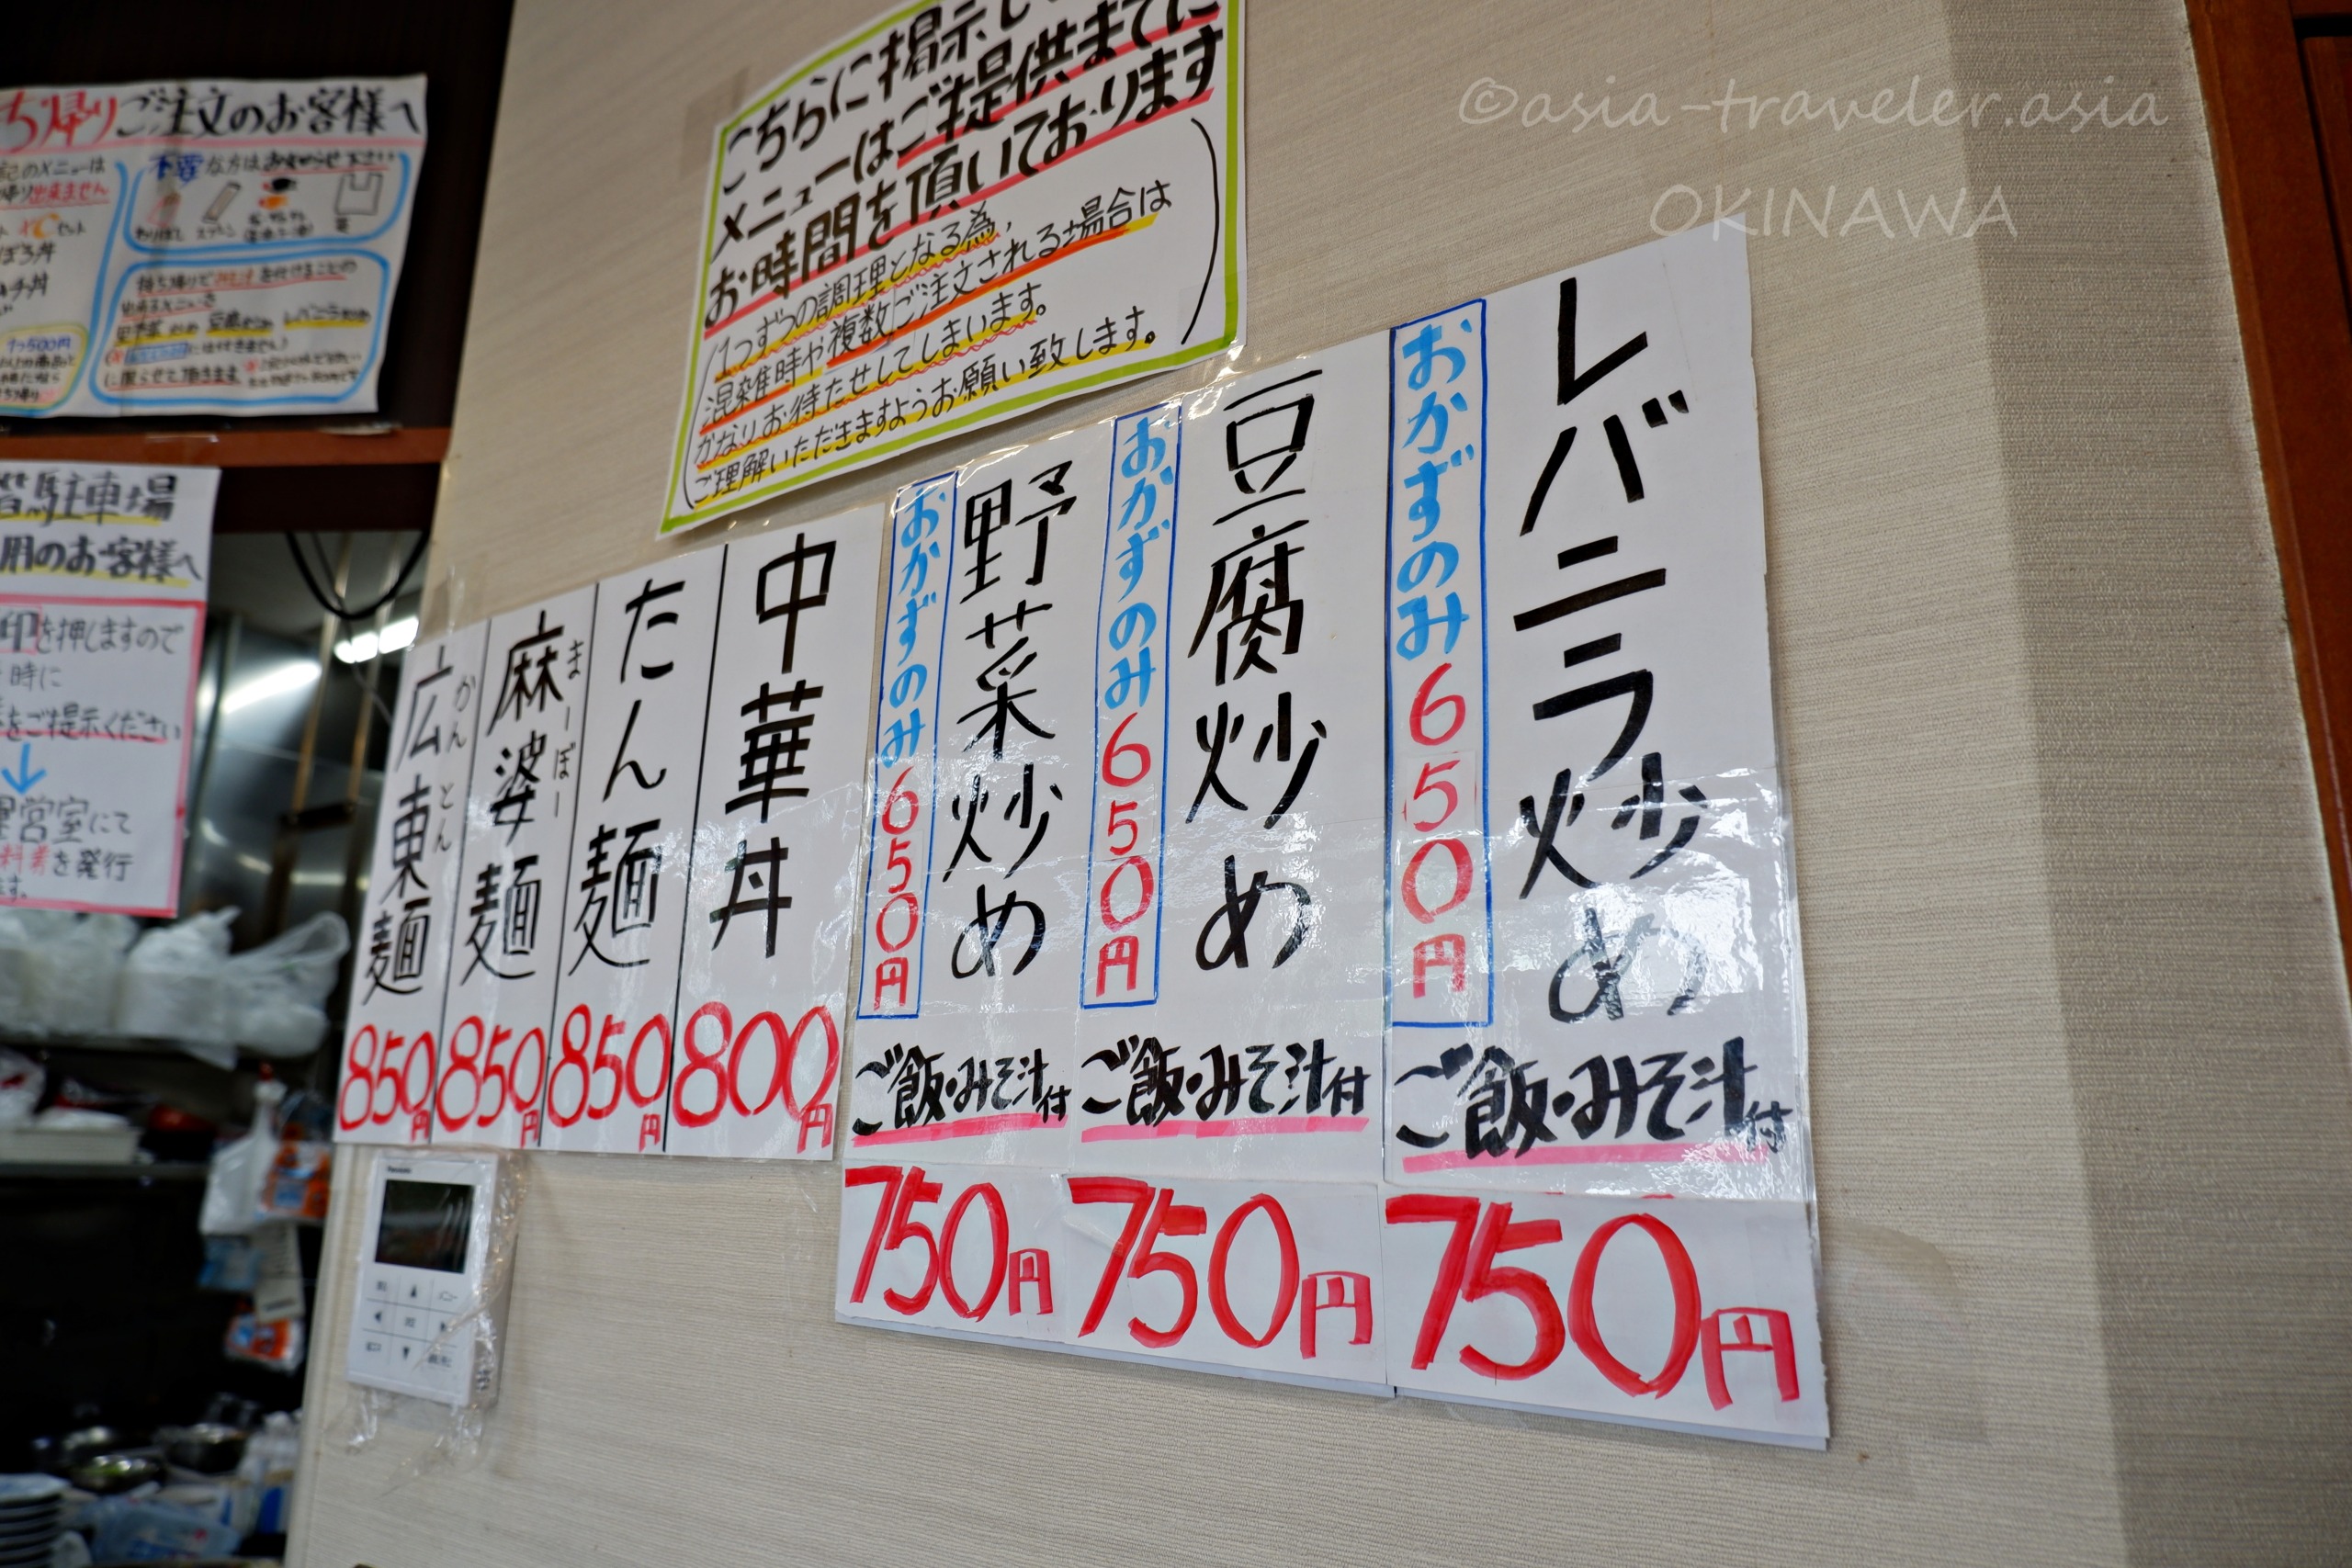 ©asia-traveler.asia
OKINAWA
こちらに掲示し
メニューはご提供までに
お時間を頂いております
(1つずつの調理となる為,
混雑時や複数ご注文される場合は
かなりお待たせしてしまいます。
ご理解いただきますようお願い致します。)
レバニラ炒め
おかずのみ650円
ご飯・みそ汁付
750円
豆腐炒め
おかずのみ650円
ご飯・みそ汁付
750円
野菜炒め
おかずのみ650円
ご飯・みそ汁付
750円
中華丼
800円
たん麺
850円
麻婆麺
まーぼー
850円
広東麺
かんとん
850円
ち帰りご注文のお客様へ
のメニューは
出来ません
丼
チ丼
500円
不要な方はお知らせ下さい
わりばし スプーン
駐車場
用のお客様へ
印を押しますので
時に
をご提示ください
↓
営室にて
料券を発行
ます。